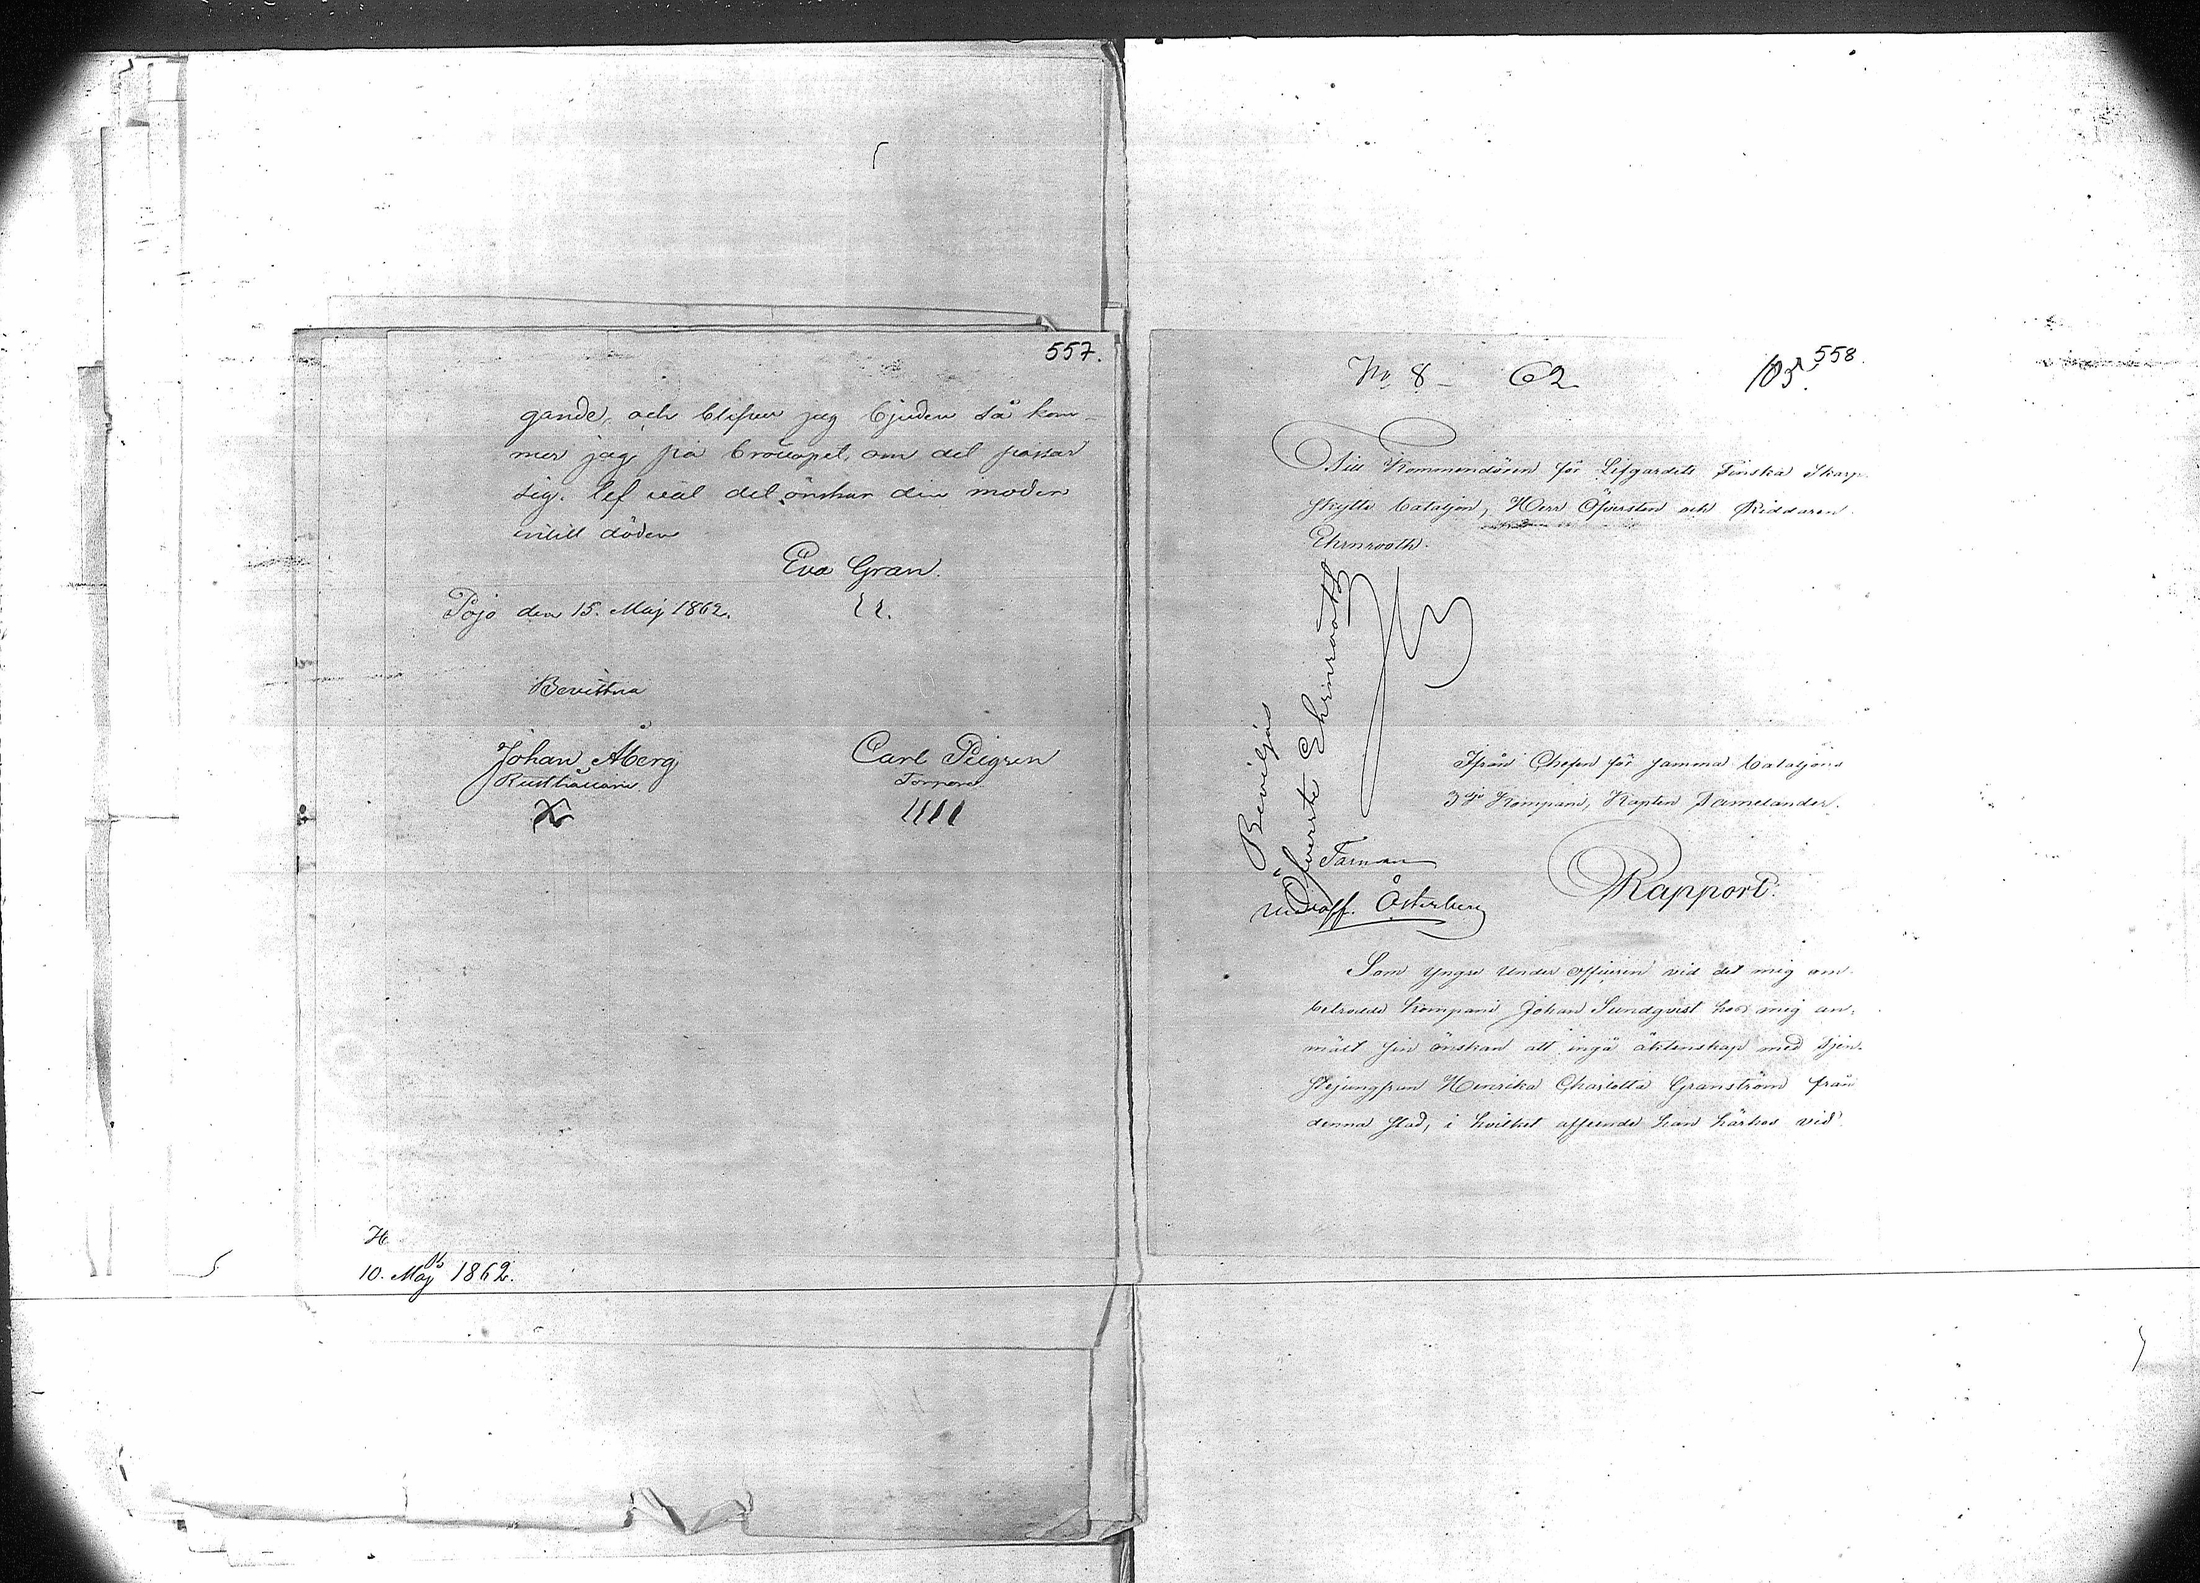 557.
gande, och blifver jag bjuden så kom-
mer jag på bröllopet, om det passar
sig. lef väl det önskar din moder
intill döden
Eva Gran.
Pojo den 15. Maj 1862.
Bevittna
Johan Åberg
Rusthållare
Carl Siigren
Torpare
H
10. Maj 1862.
558.
No 8 - 62
105.
Till Kommendören för Lifgardets Finska Skarp-
skytte bataljon, Herr Öfversten och Riddaren
Ehrnrooth.
Beviljas
Öfverste Ehrnrooth
Ifrån Chefen för samma bataljons
3dje Kompani, Kapten Tamelander.
Underoff. Österberg
Rapport.
Som yngre Under officeren vid det mig an-
betrodde Kompani Johan Sundqvist hos mig an-
mält sin önskan att ingå äktenskap med tjen-
stejungfrun Henrika Charlotta Granström från
denna stad, i hvilket afseende han härhos vid